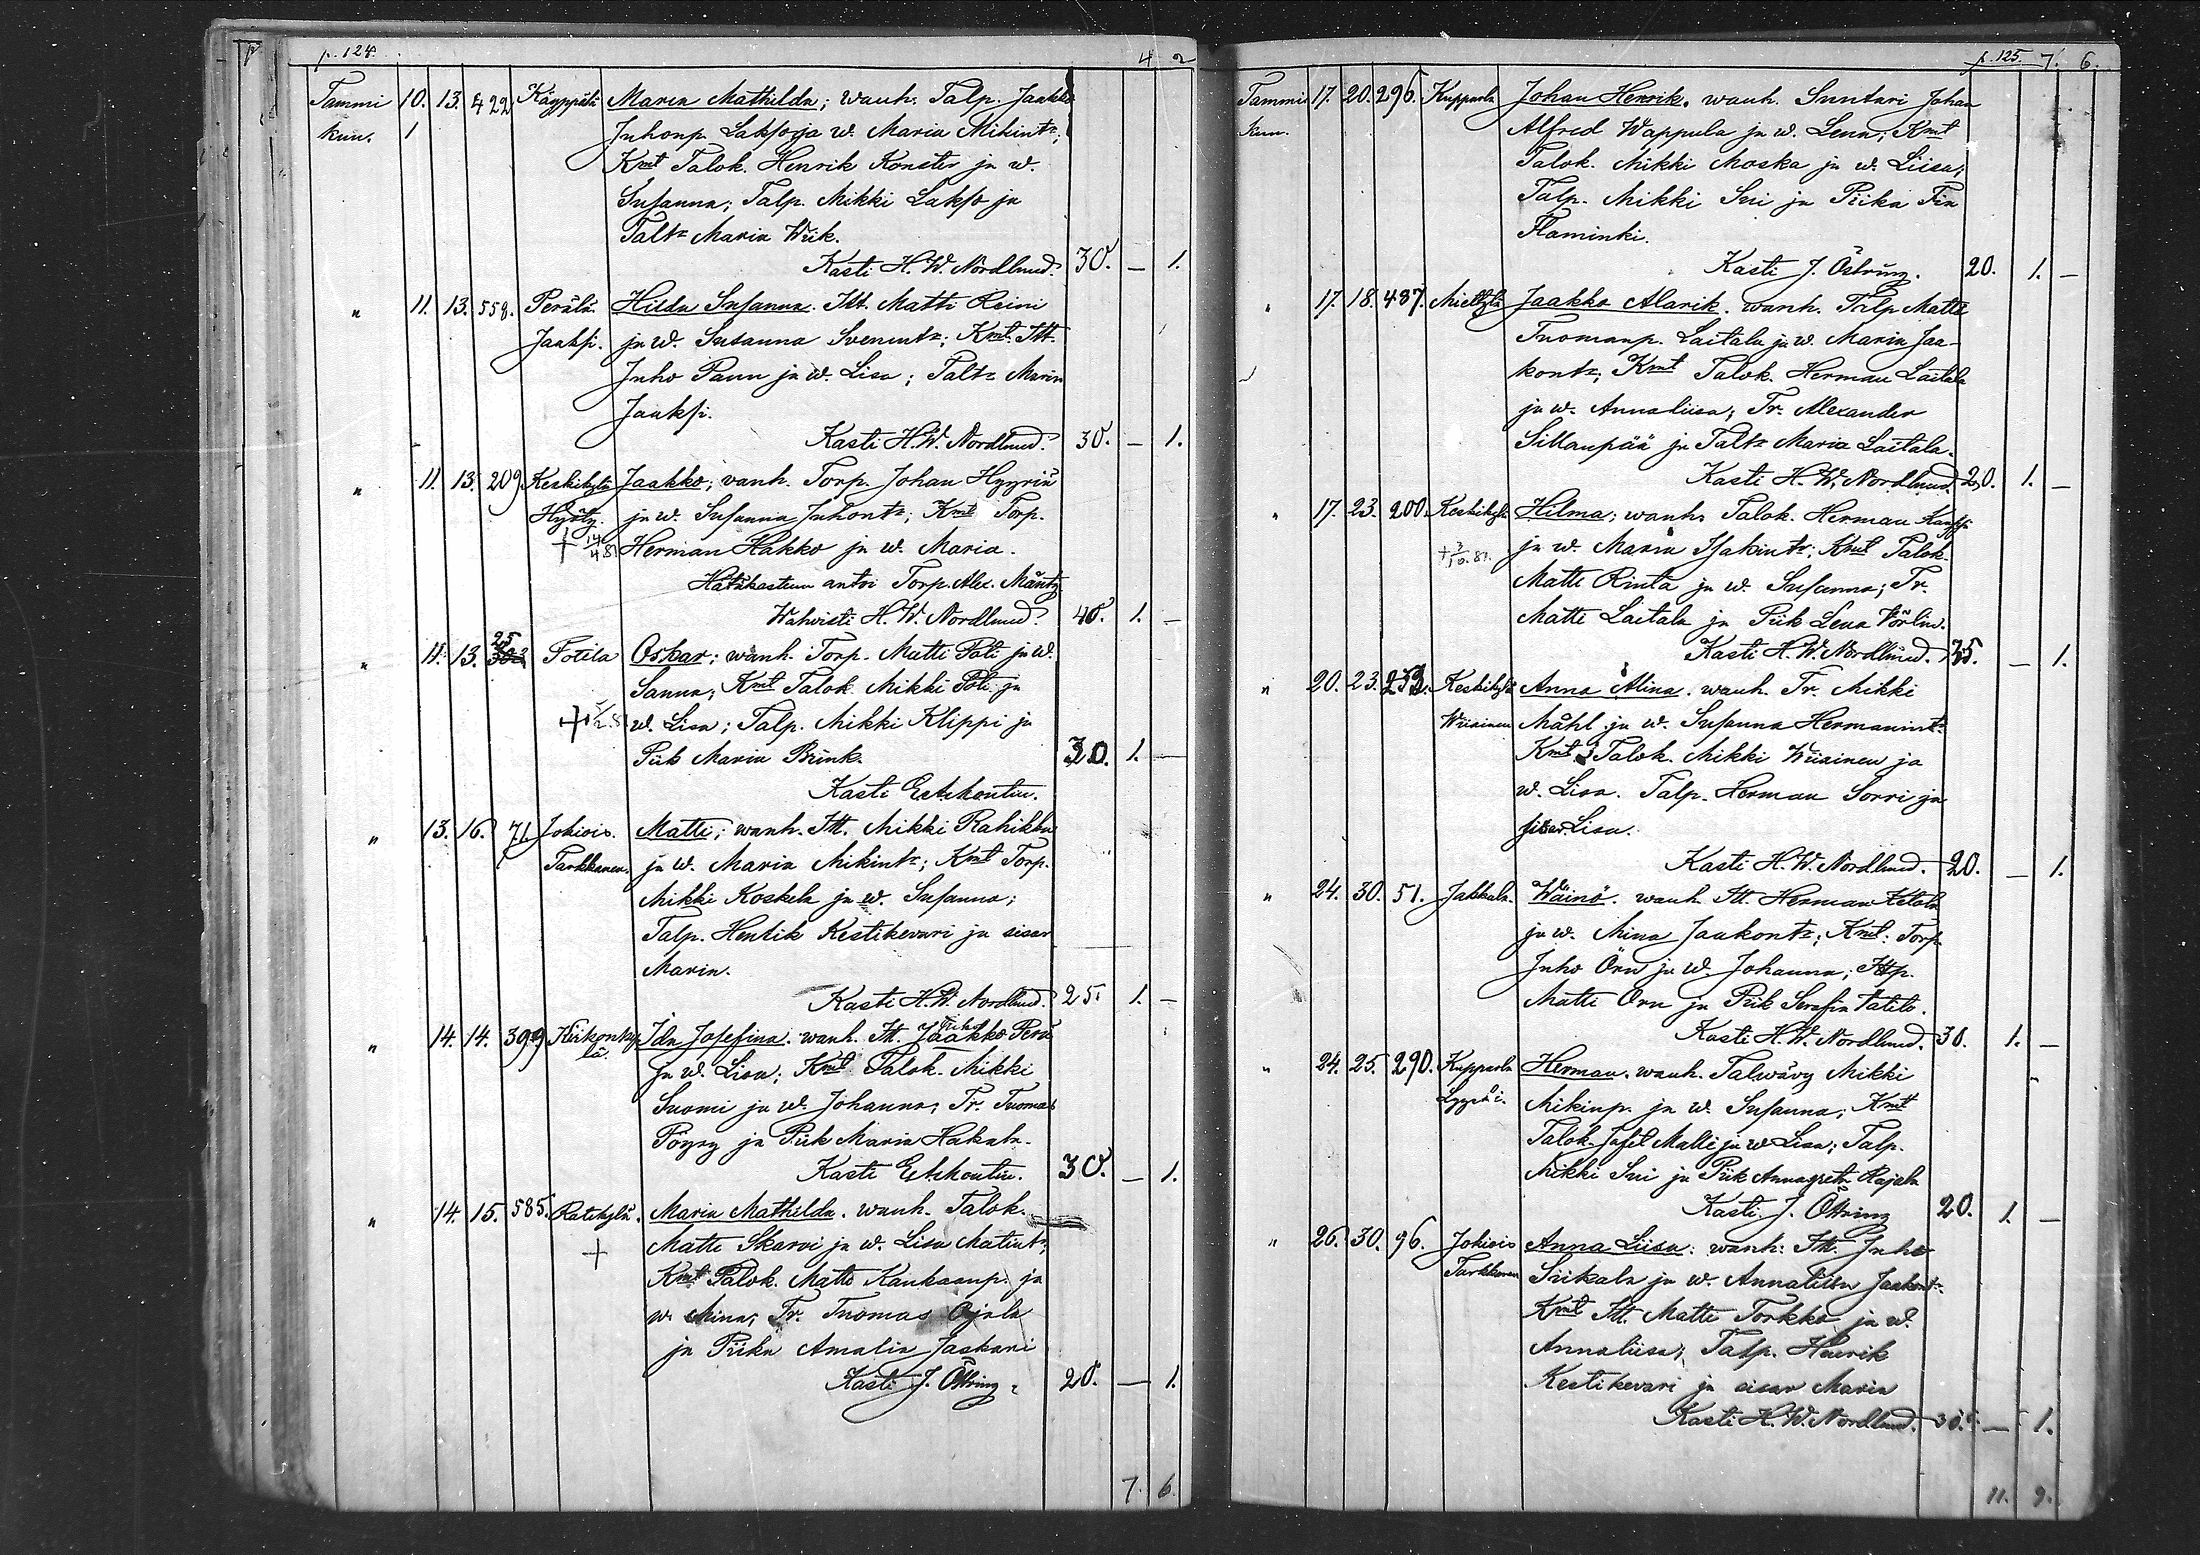 p. 124. 4 2
Tammi 10. 13. 422. Käyppälä Maria Mathilda; wanh. Talp. Jaakko
kuu. 1 Juhonp. Lakso ja w. Maria Mikintr;
Kmt Talok. Henrik Konster ja w.
Susanna; Talp. Mikki Lakso ja
Taltr Maria Wiik.
Kasti H. W. Nordlund. 30. — 1.
" 11. 13. 558. Perälä Hilda Susanna. Itt. Matti Reini
Jaaksi. ja w. Susanna Svenintr; Kmt. Itt.
Juho Paun ja w. Lisa; Taltr Maria
Jaaksi.
Kasti H. W. Nordlund. 30. — 1.
" 11. 13. 209 Keskikylä Jaakko; vanh. Torp. Johan Hyyrin
ja w. Susanna Juhontr; Kmt Torp.
+ 14/4 81 Herman Hakko ja w. Maria.
Hätäkasteen antoi Torp. Alex. Mänty
Wahwisti H. W. Nordlund 40. 1. —
" 11. 13. 25 302 Potila Oskar; wanh. Torp. Matti Poti ja w.
Sanna; Kmt Talok. Mikki Poti ja
w. Lisa; Talp. Mikki Klippi ja
Piik Maria Brink. 30. 1. —
Kasti
" 13. 16. 71. Jokiois. Matti; wanh. Itt. Mikki Rahikka
Tarkkanen. ja w. Maria Mikintr; Kmt Torp.
Mikki Koskela ja w. Susanna;
Talp. Henrik Kestikevari ja sisar
Maria.
Kasti H. W. Nordlund. 25. 1. —
" 14. 14. 399 Kirkonky Ida Josefina. wanh. Itt. Jaakko Juho
lä. ja w. Lisa; Kmt Talok. Mikki
Suomi ja w. Johanna; Tr. Tuomas
Pöyry ja Piik Maria Hakala.
Kasti 30. — 1.
" 14. 15. 585. Ratikylä. Maria Mathilda. wanh. Talok.
+ Matti Skarvi ja w. Lisa Matintr;
Kmt Talok. Matti Kankaanp. ja
w. Mina; Tr. Tuomas Ojala
ja Piika Amalia Jaskari
Kasti J. Östring. 20. — 1.
7. 6.
p. 125. 7. 6.
Tammi 17. 20. 296. Kupparla Johan Henrik. wanh. Suntari Johan
kuu. Alfred Wappula ja w. Lena; Kmt
Talok. Mikki Moska ja w. Liisa;
Talp. Mikki Sui ja Piika Fia
Flaminki.
Kasti J. Östring. 20. 1. —
" 17. 18. 487. Mieltylä Jaakko Alarik. wanh. Talp Matti
Tuomanp. Laitala ja w. Maria Jaa-
kontr; Kmt Talok. Herman Laitala
ja w. Annaliisa; Tr. Alexander
Sillanpää ja Taltr Maria Laitala.
Kasti H. W. Nordlund. 20. 1. —
" 17. 23. 200. Keskikylä Hilma; wanh. Talok. Herman Kauppi
ja w. Maria Isakintr; Kmt Talok.
Matti Rinta ja w. Susanna; Tr.
Matti Laitala ja Piik Lena Wörlin.
Kasti H. W. Nordlund. 35. — 1.
" 20. 23. 253. Keskikylä Anna Alina. wanh. Tr. Mikki
Wiiainen Måhl ja w. Susanna Hermanintr.
Kmt Talok. Mikki Wiiainen ja
w. Lisa. Talp. Herman Sorri ja
sisar Lisa.
Kasti H. W. Nordlund. 20. — 1.
" 24. 30. 51. Jakkala. Wäinö. wanh. Itt. Herman Ketola
ja w. Mina Jaakontr; Kmt: Torp.
Juho Örn ja w. Johanna; Ittp.
Matti Örn ja Piik Serafia
Kasti H. W. Nordlund. 30. 1. —
" 24. 25. 290. Kupparla Herman. wanh. Talwävy Mikki
Mikinp. ja w. Susanna; Kmt
Talok. Josef Malli ja w. Lisa; Talp.
Mikki Sui ja Piik Annagreta Rajala
Kasti J. Östring 20. 1. —
" 26. 30. 96. Jokiois Anna Liisa: wanh: Itt. Juho
Tarkkanen Siikala ja w. Annaliisa Jaakont.
Kmt Itt. Matti Torkko ja w.
Annaliisa; Talp. Henrik
Kestikevari ja sisar Maria
Kasti H. W. Nordlund. 30. — 1.
11. 9.